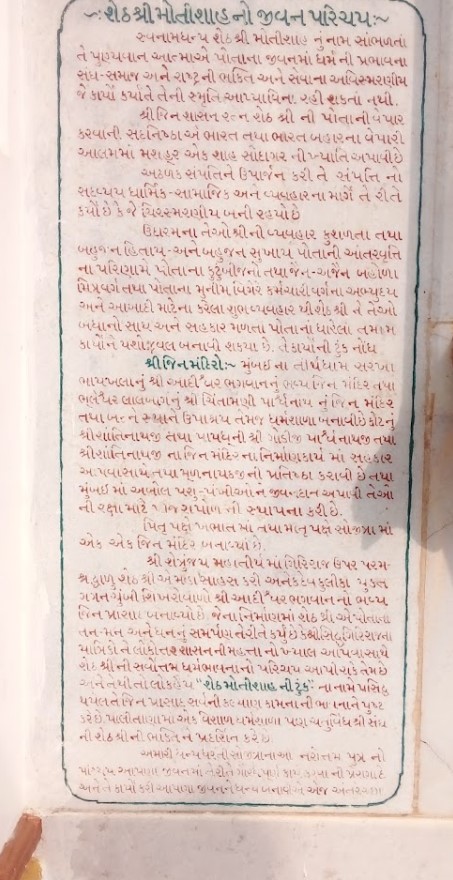 શેઠશ્રી મોતીશાહ નો જીવન પરિચય:~
સ્વનામધન્ય શેઠશ્રી મોતીશાહ નું નામ સાંભળતા
તે પુણ્યવાન આત્માએ પોતાના જીવનમાં ધર્મની પ્રભાવના
સંઘ-સમાજ અને રાષ્ટ્રની ભક્તિ અને સેવાના અવિસ્મરણીય
જે કાર્યો કર્યા તે તેની સ્મૃતિ આપ્યા વિના રહી શકતાં નથી.
શ્રી જિનશાસન રત્ન શેઠ શ્રી ની પોતાની વેપાર
કરવાની સદનિષ્ઠાએ ભારત તથા ભારત બહારના વેપારી
આલમમાં મશહૂર એક શાહ સોદાગર ની ખ્યાતિ અપાવી છે
અઢળક સંપતિને ઉપાર્જન કરી તે સંપતિ નો
સદવ્યય ધાર્મિક-સામાજિક અને વ્યવહારના માર્ગે તે રીતે
કર્યો છે કે જે ચિરસ્મરણીય બની રહયો છે
ઉદારમના તેઓશ્રી નો વ્યવહાર કુશળતા તથા
બહુજન હિતાય-અને બહુજન સુખાય પોતાની આંતરવૃત્તિ
ના પરિણામે પોતાના કુટુંબીજનો તથા જૈન-અજૈન બહોળા
મિત્રવર્ગ તથા પોતાના મુનીમ વિગેરે કર્મચારી વર્ગના અભ્યુદય
અને આબાદી માટેના કરેલા શુભ વ્યવહાર થી શેઠશ્રી ને તેઓ
બધાનો સાથ અને સહકાર મળતા પોતાના ધારેલા તમામ
કાર્યોને યશોજ્જવલ બનાવી શક્યા છે. તે કાર્યોની ટૂંક નોંધ
શ્રી જિન મંદિરો:~ મુંબઈ ના તીર્થધામ સરખા
ભાયખલાનું શ્રી આદીશ્વર ભગવાનનું ભવ્ય જિન મંદિર તથા
ભુલેશ્વર લાલબાગનું શ્રી ચિંતામણી પાર્શ્વનાથ નું જિન મંદિર
તથા બન્ને સ્થાને ઉપાશ્રય તેમજ ધર્મશાળા બનાવી છે કોટનું
શ્રી શાંતિનાથજી તથા પાયધુની શ્રી ગોડીજી પાર્શ્વનાથજી તથા
શ્રી શાંતિનાથજી ના જિન મંદિર ના નિર્માણકાર્ય માં સહકાર
આપવા સાથે તથા મૂળનાયકજી નો પ્રતિષ્ઠા કરાવી છે તથા
મુંબઈ માં અબોલ પશુ-પંખીઓન જીવનદાન અપાવી તેઓ
ની રક્ષા માટે પાંજરાપોળ ની સ્થાપના કરી છે.
પિતૃ પક્ષે ખંભાત માં તથા માતૃ પક્ષે સોજીત્રા માં
એક એક જિન મંદિર બનાવ્યાં છે.
શ્રી શેત્રુંજય મહાતીર્થ માં ગિરિરાજ ઉપર પરમ-
શ્રદ્ધાળુ શેઠશ્રી એ મહા સાહસ કરી અનેક દેવકુલીકા યુક્ત
ગગનચુંબી શિખરોવાળો શ્રી આદીશ્વર ભગવાનનો ભવ્ય
જિન પ્રાસાદ બનાવ્યો છે. જેના નિર્માણમાં શેઠ શ્રી એ પોતાના
તન-મન અને ધનનું સમર્પણ તે રીતે કર્યું છે કે શ્રી સિદ્ધગિરિરાજના
યાત્રિકો ને લોકોત્તર શાસન ની મહત્તા નો ખ્યાલ આપવા સાથે
શેઠ શ્રી ની સર્વોત્તમ ધર્મભાવનાનો પરિચય આપી શકે તેમ છે
અને તેથી તો લોકહૈયે "શેઠ મોતીશાહ ની ટૂંક" ના નામે પ્રસિદ્ધ
થયેલ તે જિન પ્રાસાદ સર્વની કલ્યાણ કામના ની ભાવનાને પુષ્ટ
કરે છે. પાલીતાણા માં એક વિશાળ ધર્મશાળા પણ ચતુર્વિધ શ્રી સંઘ
ની શેઠશ્રી ની ભક્તિ ને પ્રદર્શિત કરે છે.
અમારી ધન્ય ધરતી સોજીત્રાના આ નરોત્તમ પુત્ર નો
આપણા જીવનમાં તે રીતે કાર્ય કરવા નો
અને તે કાર્યો કરી આપણા જીવનને ધન્ય બનાવીએ એજ